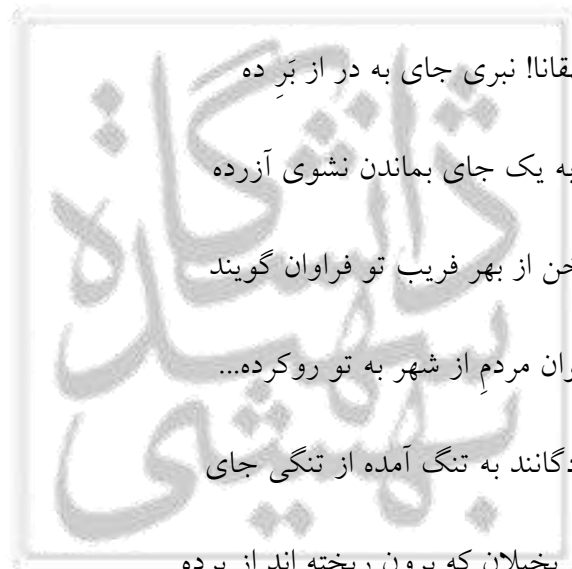 قانا! نبری جای به در از بَرِ ده
به یک جای بماندن نشوی آزرده
خن از بهر فریب تو فراوان گویند
ران مردمِ از شهر به تو روکرده...
دگانند به تنگ آمده از تنگی جای
بخیلان که برون ریخته اند از پرده
دانشگاه
شهید
بهشتی